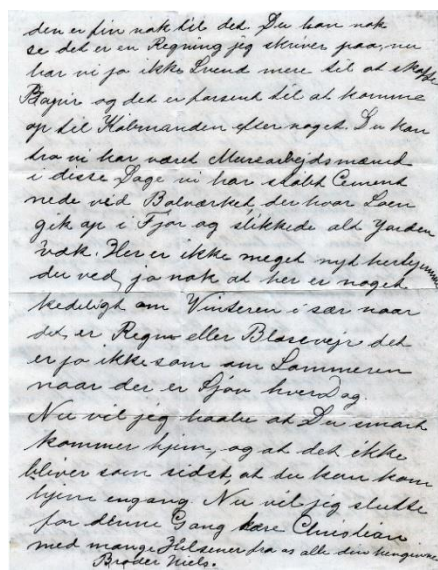 den er fin nok til det. Du kan nok
se det er en Regning jeg skriver paa, nu
har vi jo ikke Svend mere til at skaffe
Papir og det er forsent til at komme
op til Købmanden efter noget. Du kan
tro vi har været Murearbejdsmænd
i disse Dage vi har støbt Cement
nede ved Bolværket, der hvor Søen
gik op i Fjor og slikkede alt Jorden
væk. Her er ikke meget nyt herhjemme
du ved jo nok at her er noget
kedeligt om Vinteren i sær naar
det er Regn eller Blæsevejr det
er jo ikke som om Sommeren
naar der er Sjov hver Dag.
Nu vil jeg haabe at Du snart
kommer hjem, og at det ikke
bliver som sidst, at du kun kom
hjem engang. Nu vil jeg slutte
for denne Gang kære Christian
med mange Hilsener fra os alle din hengivne
Broder Niels.